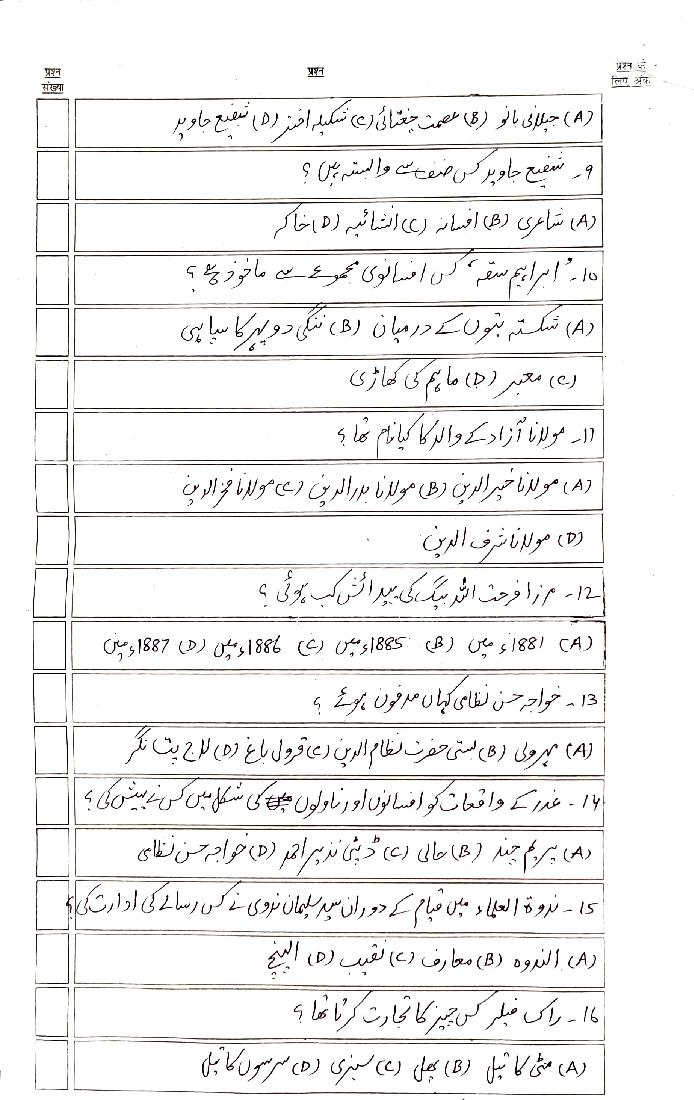 प्रश्न संख्या
प्रश्न
प्रश्न के लिए अंक
(A) جیلانی بانو (B) عصمت چغتائی (C) شکیلہ اختر (D) شفیع جاوید
۹۔ شفیع جاوید کس صنف سے وابستہ ہیں؟
(A) شاعری (B) افسانہ (C) انشائیہ (D) خاکہ
۱۰۔ ’ابراہیم سقہ‘ کس افسانوی مجموعے سے ماخوذ ہے؟
(A) شکستہ بتوں کے درمیان (B) ننگی دوپہر کا سپاہی
(C) معبر (D) ماہم کی کھاڑی
۱۱۔ مولانا آزاد کے والد کا کیا نام تھا؟
(A) مولانا خیرالدین (B) مولانا بدرالدین (C) مولانا فخرالدین
(D) مولانا شرف الدین
12۔ مرزا فرحت اللہ بیگ کی پیدائش کب ہوئی؟
(A) 1881ء میں (B) 1885ء میں (C) 1886ء میں (D) 1887ء میں
13۔ خواجہ حسن نظامی کہاں مدفون ہوئے؟
(A) مہرولی (B) بستی حضرت نظام الدین (C) قرول باغ (D) لاجپت نگر
۱۴۔ غدر کے واقعات کو افسانوں اور ناولوں کی شکل میں کس نے پیش کی؟
(A) پریم چند (B) حالی (C) ڈپٹی نذیر احمد (D) خواجہ حسن نظامی
15۔ ندوۃ العلماء میں قیام کے دوران سید سلیمان ندوی نے کس رسالے کی ادارت کی؟
(A) الندوہ (B) معارف (C) نقیب (D) الپنچ
16۔ راک فیلر کس چیز کا تجارت کرتا تھا؟
(A) مٹی کا تیل (B) پھل (C) سبزی (D) سرسوں کا تیل